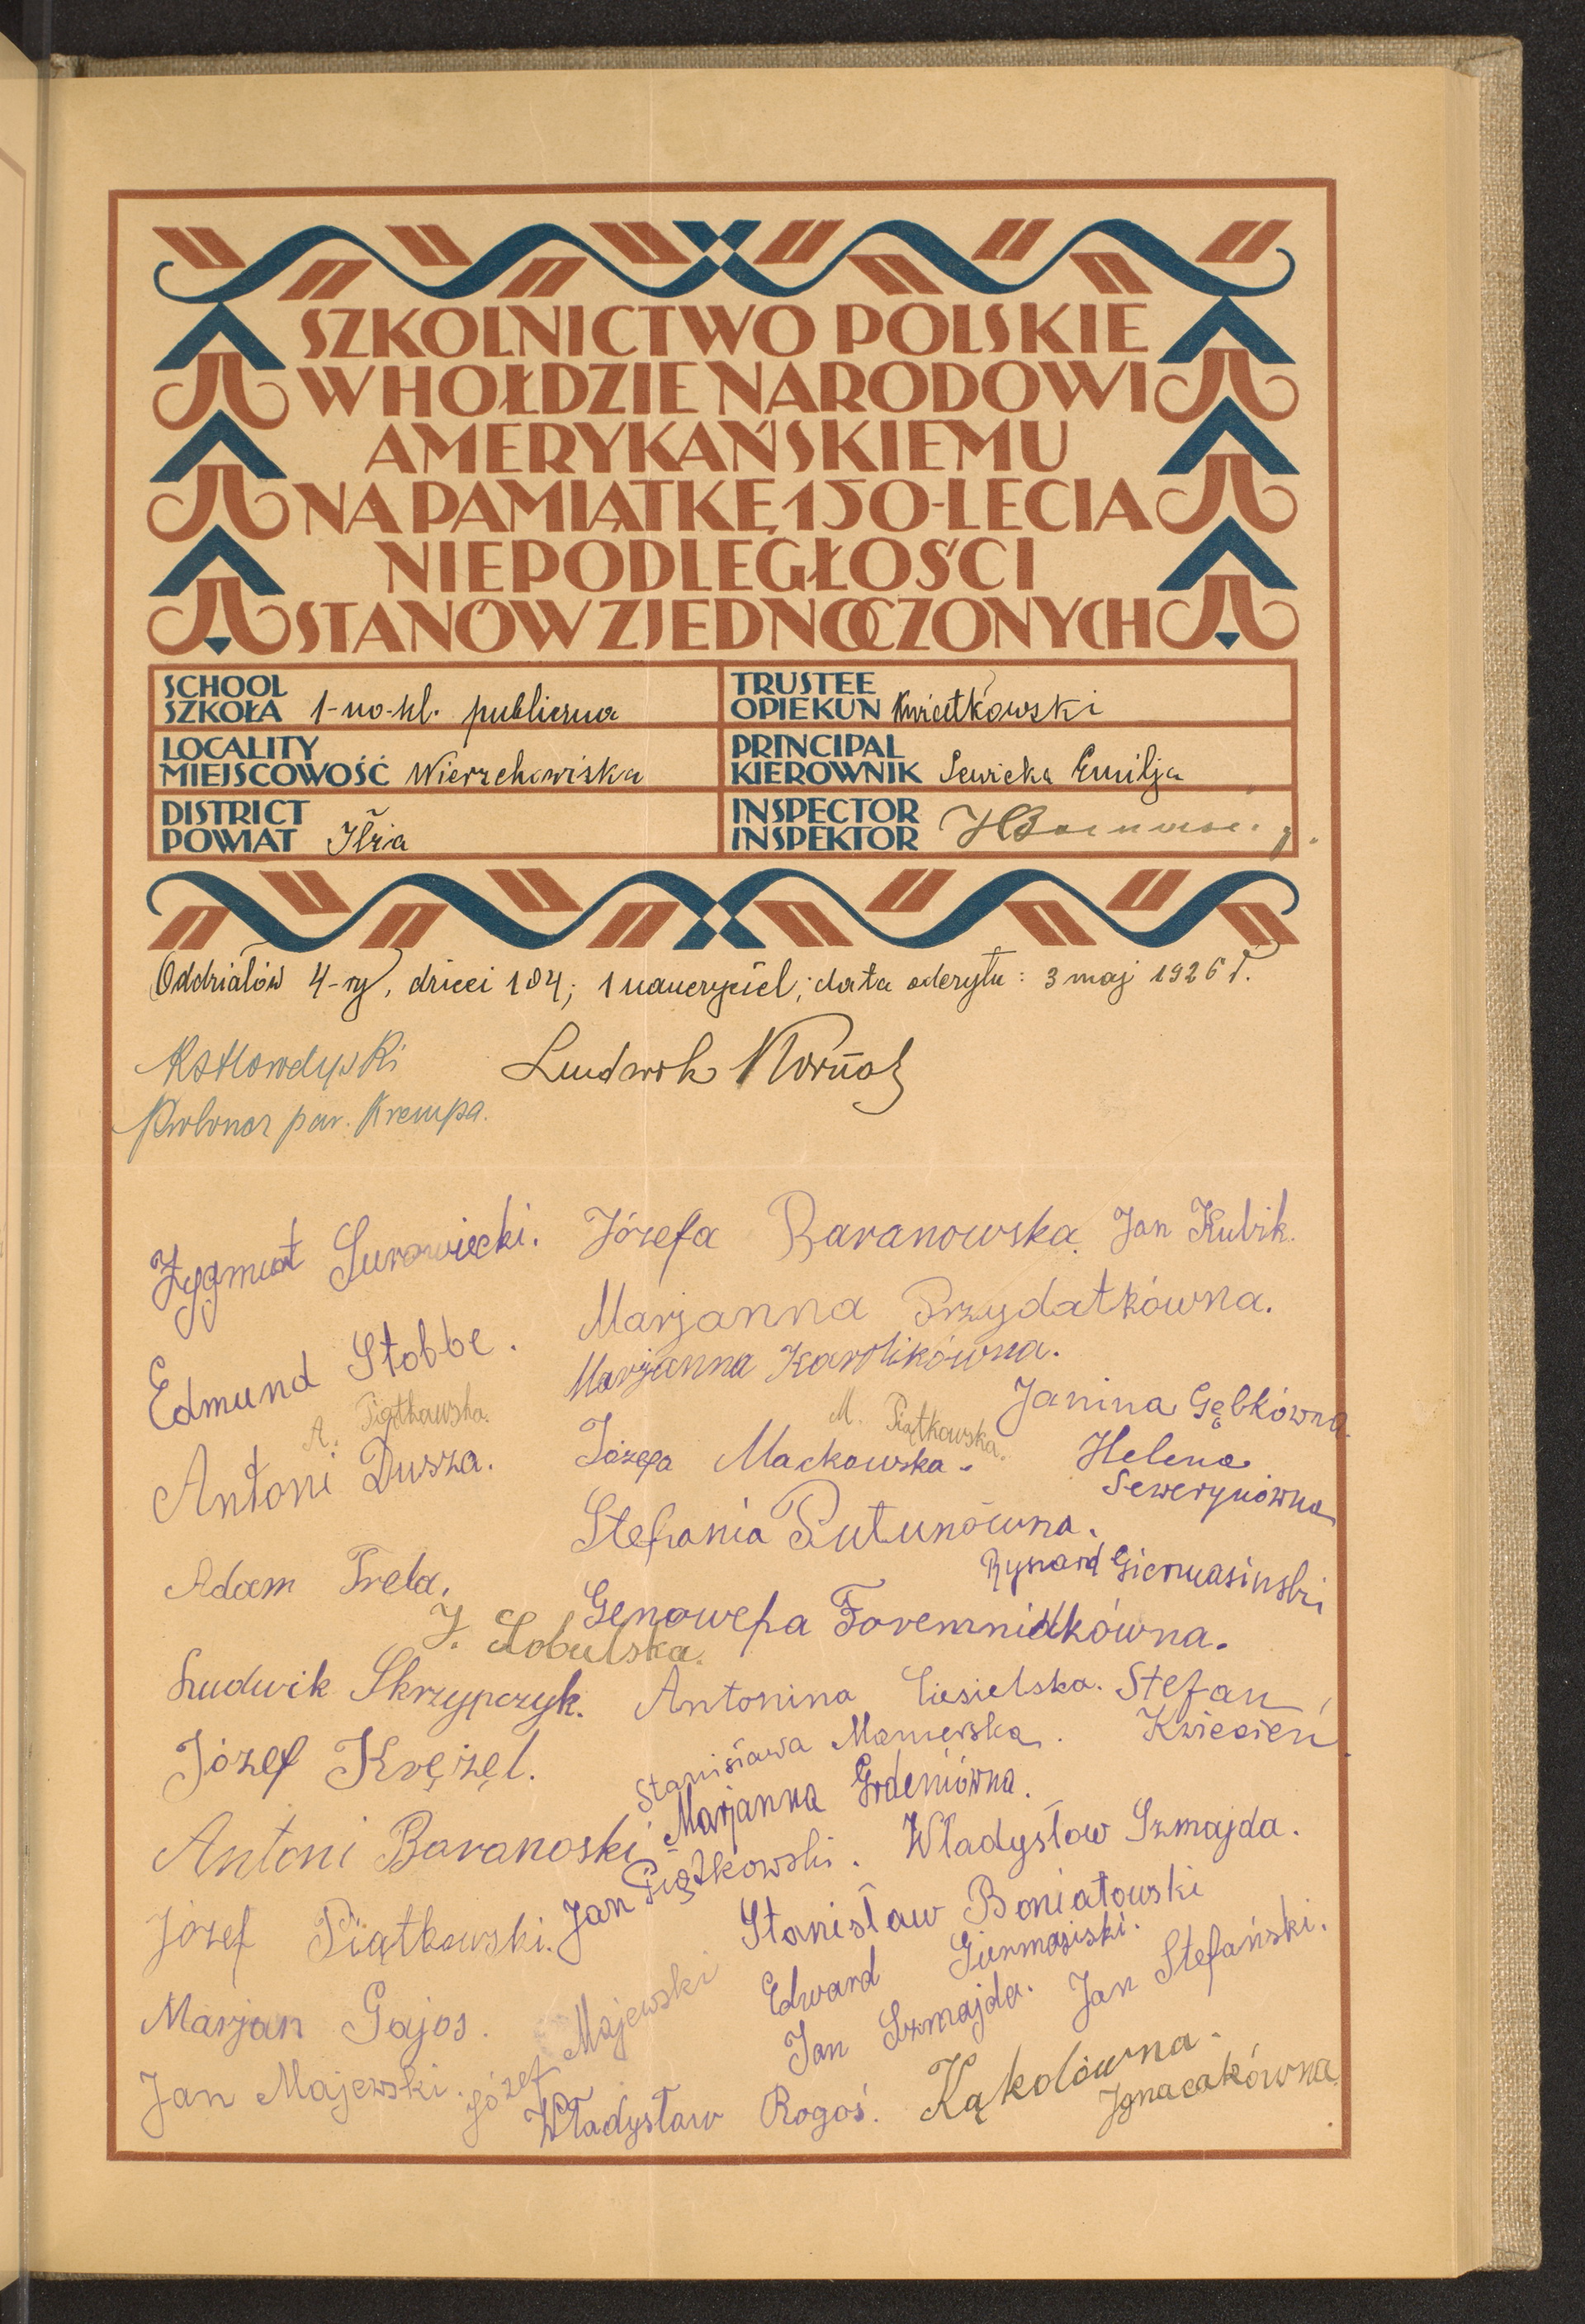 SZKOLNICTWO POLSKIE
W HOŁDZIE NARODOWI
AMERYKAŃSKIEMU
NA PAMIĄTKĘ 150-LECIA
NIEPODLEGŁOŚCI
STANÓW ZJEDNOCZONYCH
SCHOOL
SZKOŁA 1-no-kl. publiczna
TRUSTEE
OPIEKUN Kwiatkowski
LOCALITY
MIEJSCOWOŚĆ Wierzchowiska
PRINCIPAL
KIEROWNIK Sewicka Emilja
DISTRICT
POWIAT Iłża
INSPECTOR
INSPEKTOR
Oddziałów 4-ry, dzieci 104; 1 nauczyciel; data odczytu: 3 maj 1926 r.
Ludwik
par. Krempa.
Zygmunt Surowiecki. Józefa Baranowska. Jan Kubik.
Marjanna Przydatkówna.
Edmund Stobbe. Marjanna Karolikówna.
Janina Gębkówna.
A. Piątkowska. M. Piątkowska.
Antoni Dusza. Józefa Mackowska. Helena
Sewerynówna
Stefania Putunówna.
Adam Trela. Ryszard Giermasinski
Genowefa Foremniakówna.
J. Łobulska.
Ludwik Skrzypczyk. Antonina Ciesielska. Stefan
Kwiecień
Józef Krężęl. Stanisława
Marjanna Grdeniówna.
Antoni Baranoski Władysław Szmajda.
Jan Piątkowski.
Józef Piątkowski. Stanisław Boniatowski
Edward Giermasiski.
Marjan Gajos. Józef Majewski Jan Szmajda. Jan Stefański.
Jan Majewski. Władysław Rogoś. Kąkolówna.
Ignacakówna.